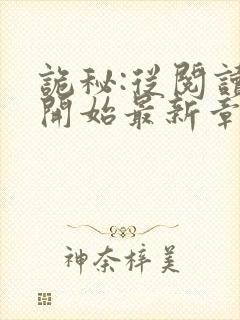 詭秘:從閱讀
開始最新章
神奈梓美